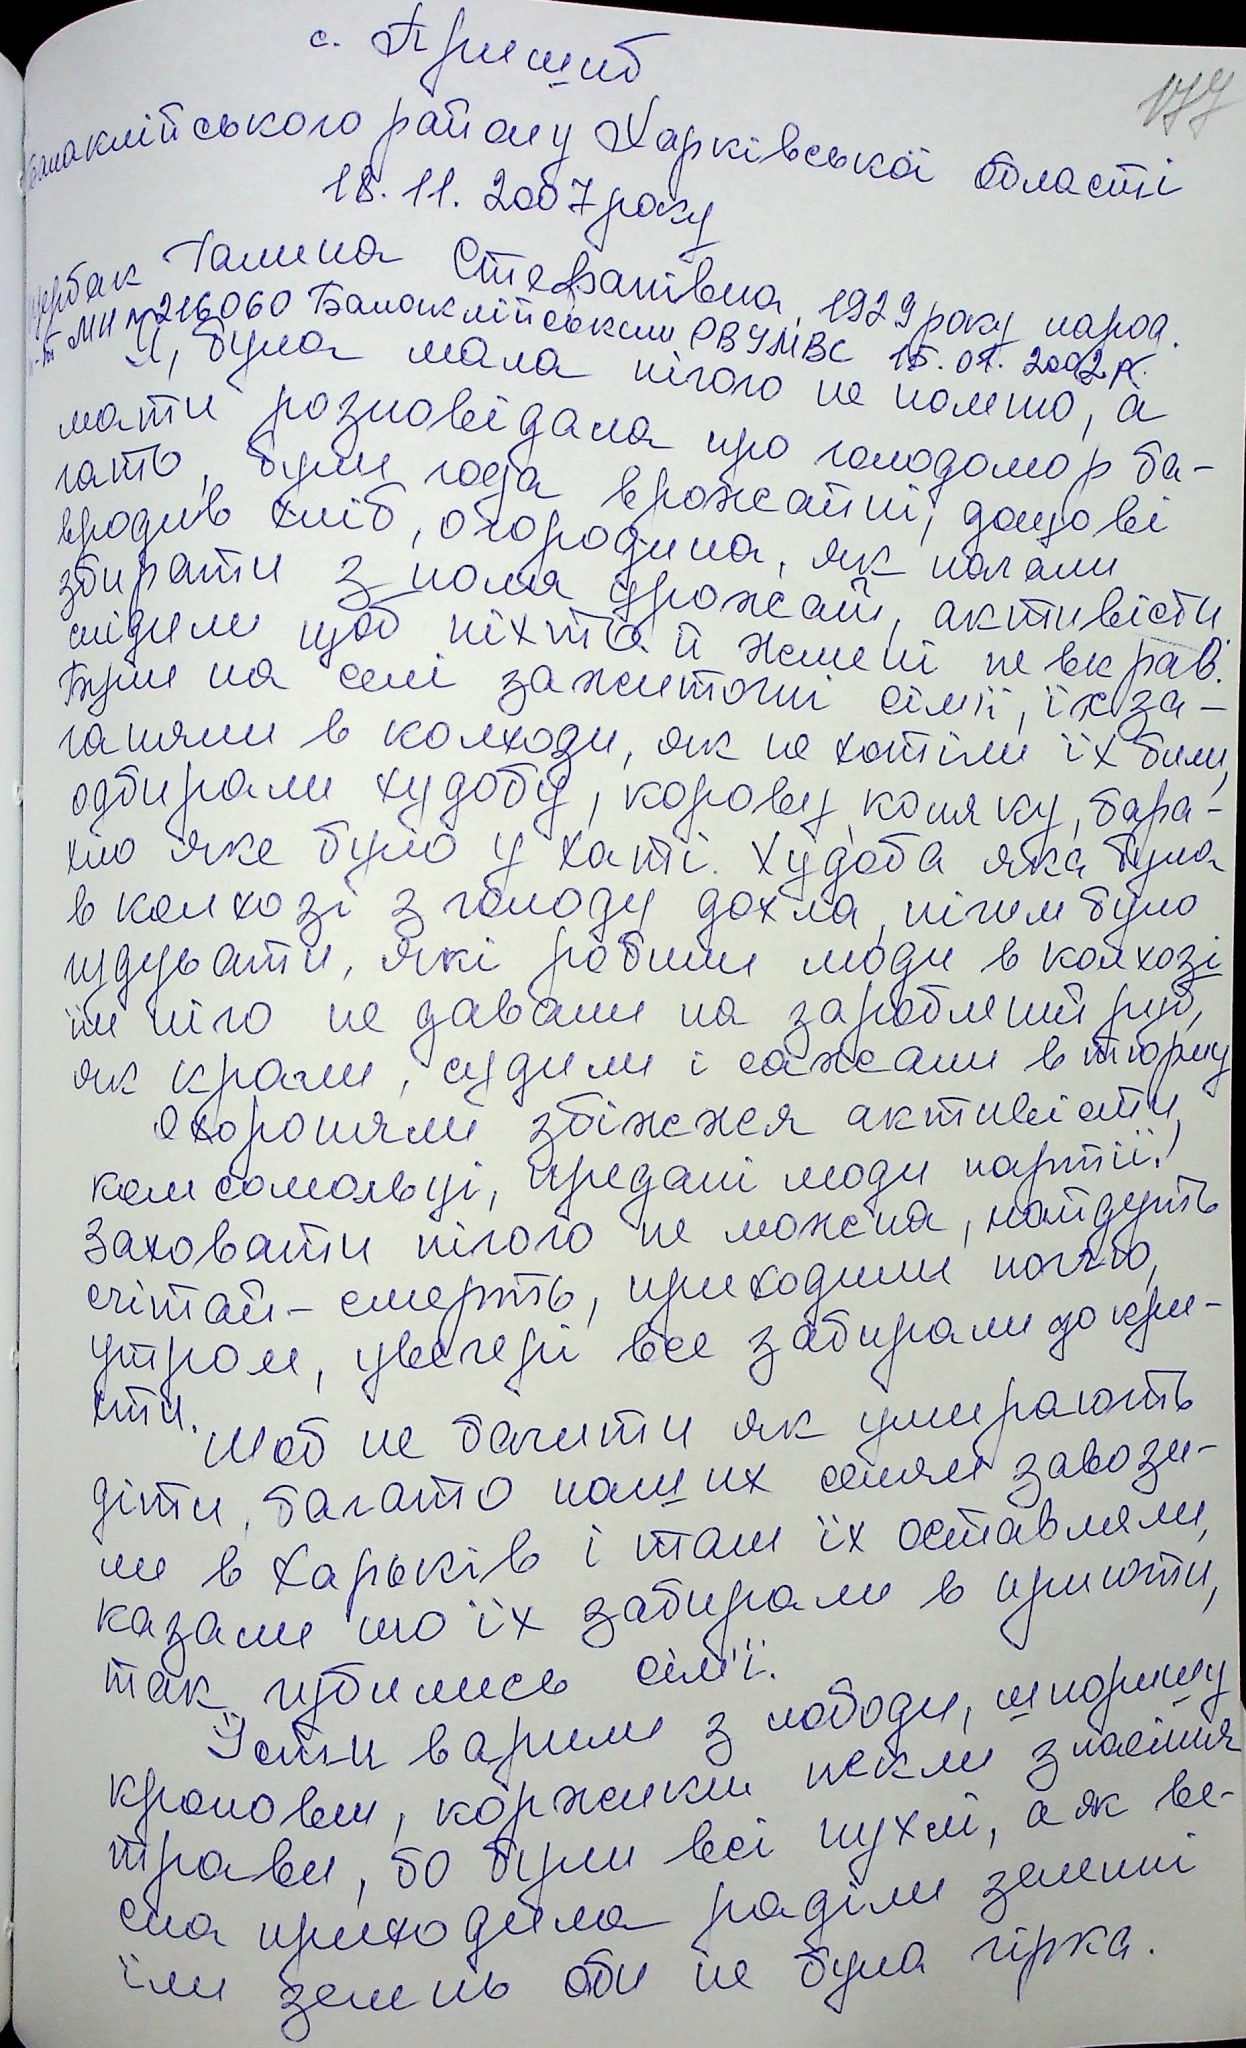 177
с. Пришиб
Балаклійського району Харківської області
18.11.2007 року
Щербак Галина Степанівна, 1929 року народ.
п-т МН № 216060 Балаклійським РВУМВС 15.01.2002 р.
Я, була мала нічого не помню, а
мати розповідала про голодомор ба-
гато, були года врожайні, дощові
вродив хліб, огородина, як почали
збирати з поля урожай, активісти
слідили щоб ніхто й жмені не вкрав.
Були на селі зажиточні сімї, їх за-
ганяли в колхози, як не хотіли їх били,
одбирали худобу, корову, коняку, бара-
хло яке було у хаті. Худоба яка була
в колхозі з голоду дохла, нічим було
годувати, які робили люди в колхозі
їм нічо не давали на зароблений руб,
як крали, судили і сажали в тюрму
Охороняли збіжжя активісти,
комсомольці, предані люди партії!
Заховати нічого не можна, найдуть
счітай - смерть, приходили ноччю,
утром, увечері все забирали до кри-
хти.
Шоб не бачити як умирають
діти, багато наших селян завози-
ли в Харьків і там їх оставляли,
казали шо їх забирали в приюти,
так губились сімї.
Їсти варили з лободи, шпоришу
кропови, коржики пекли з насіння
трави, бо були всі пухлі, а як ве-
сна приходила раділи зелені
їли зелень аби не була гірка.